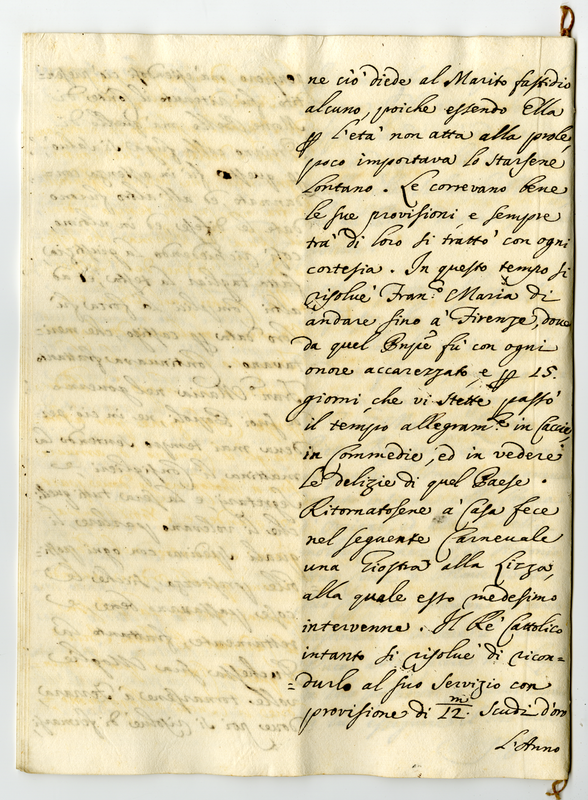 ne ciò diede al Marito fastidio
alcuno, poiche essendo Ella
ꝑ l'età non atta alla prole,
poco importava lo starsene
lontano. Le correvano bene
le sue provisioni, e sempre
trà di loro si trattò con ogni
cortesia. In questo tempo si
risoluè Fran.º Maria di
andare sino à Firenze, doue
da quel fù con ogni
onore accarezzato, e ꝑ 15.
giorni che vi stette passò
il tempo allegram.te in Caccie,
in Commedie, ed in vedere
le delizie di quel Paese.
Ritornatosene à Casa fece
nel seguente Carneuale
una Giostra alla Lizza,
alla quale esso medesimo
intervenne. Il Rè Cattolico
intanto si risoluè di ricon=
=durlo al suo servizio con
provisione di 12.m Scudi d'oro
L'Anno